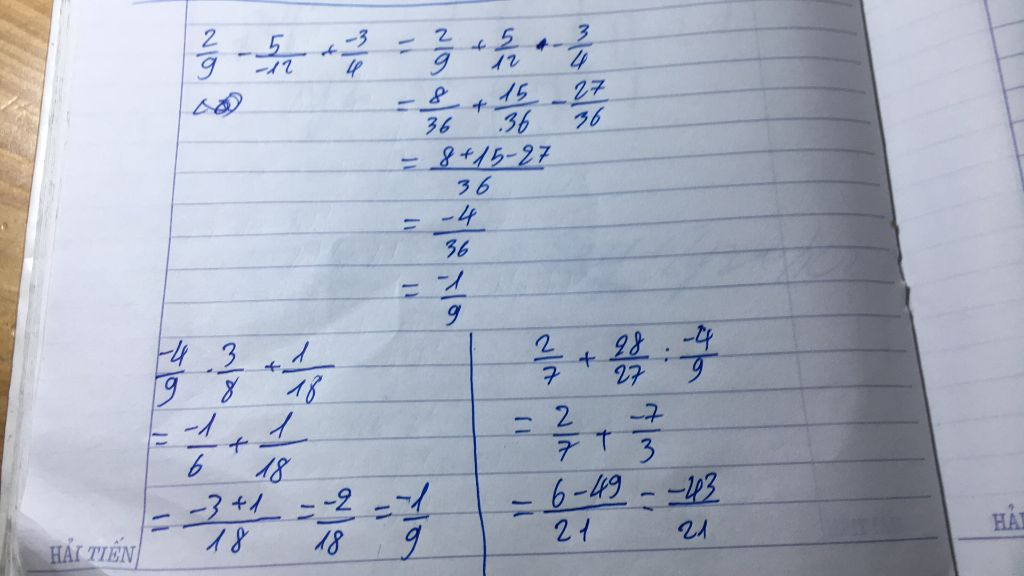 2/9 - 5/-12 + -3/4 = 2/9 + 5/12 - 3/4
= 8/36 + 15/36 - 27/36
= 8+15-27/36
= -4/36
= -1/9
-4/9 . 3/8 + 1/18
= -1/6 + 1/18
= -3+1/18 = -2/18 = -1/9
2/7 + 28/27 : -4/9
= 2/7 + -7/3
= 6-49/21 = -43/21
HẢI TIẾN
HẢI